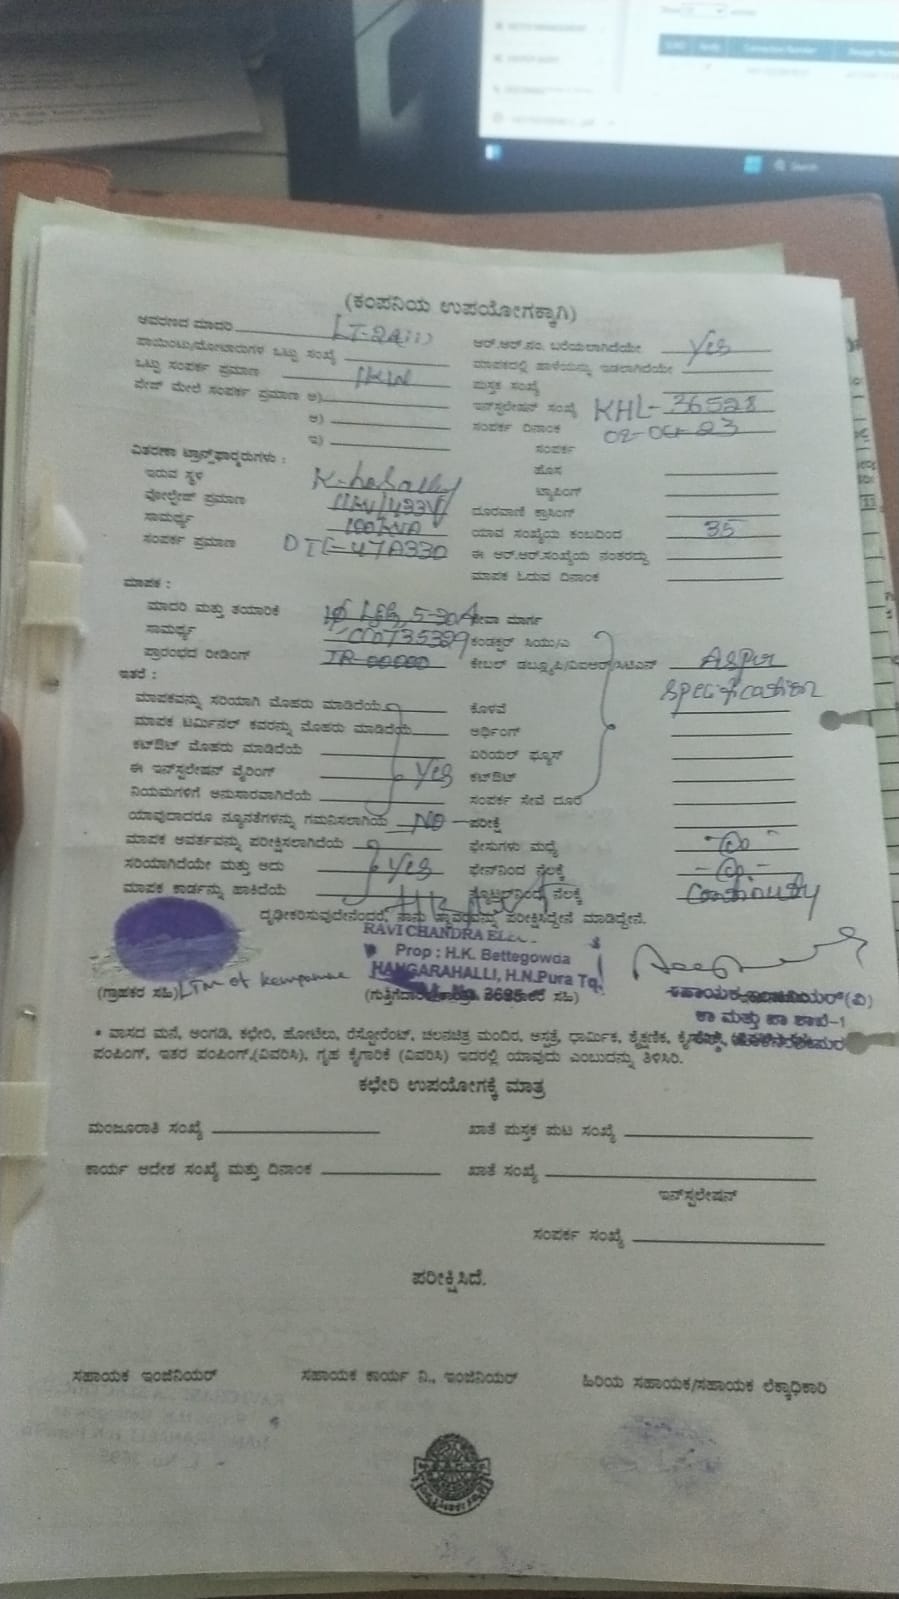 (ಕಂಪನಿಯ ಉಪಯೋಗಕ್ಕಾಗಿ)
ಆವರಣದ ಮಾದರಿ LT-2Aiii) ಆರ್.ಆರ್.ನಂ. ಬರೆಯಲಾಗಿದೆಯೇ Yes
ಪಾಯಿಂಟು/ಮೋಟಾರುಗಳ ಒಟ್ಟು ಸಂಖ್ಯೆ ಮಾಪಕದಲ್ಲಿ ಹಾಳೆಯನ್ನು ಇಡಲಾಗಿದೆಯೇ
ಒಟ್ಟು ಸಂಪರ್ಕ ಪ್ರಮಾಣ 1KW ಪುಸ್ತಕ ಸಂಖ್ಯೆ
ಪೇಜ್ ಮೇಲೆ ಸಂಪರ್ಕ ಪ್ರಮಾಣ ಅ) ಇನ್‌ಸ್ಟಲೇಷನ್ ಸಂಖ್ಯೆ KHL-36528
ಆ) ಸಂಪರ್ಕ ದಿನಾಂಕ 02-04-23
ಇ) ಸಂಪರ್ಕ
ವಿತರಣಾ ಟ್ರಾನ್ಸ್‌ಫಾರ್ಮರುಗಳು :
ಹೊಸ
ಇರುವ ಸ್ಥಳ K-hosally ಟ್ಯಾಪಿಂಗ್
ವೋಲ್ಟೇಜ್ ಪ್ರಮಾಣ 11KV/433V ದೂರವಾಣಿ ಕ್ರಾಸಿಂಗ್
ಸಾಮರ್ಥ್ಯ 100KVA ಯಾವ ಸಂಖ್ಯೆಯ ಕಂಬದಿಂದ 35
ಸಂಪರ್ಕ ಪ್ರಮಾಣ DTC-47A330 ಈ ಆರ್.ಆರ್.ಸಂಖ್ಯೆಯ ನಂತರದ್ದು
ಮಾಪಕ ಓದುವ ದಿನಾಂಕ
ಮಾಪಕ :
ಮಾದರಿ ಮತ್ತು ತಯಾರಿಕೆ 1Ø L&G, 5-30A ಸೇವಾ ಮಾರ್ಗ
ಸಾಮರ್ಥ್ಯ ಕಂಡಕ್ಟರ್ ಸಿಯು/ಎ
ಪ್ರಾರಂಭದ ರೀಡಿಂಗ್ IR-00000 ಕೇಬಲ್ As per
ಇತರೆ : specification
ಮಾಪಕವನ್ನು ಸರಿಯಾಗಿ ಮೊಹರು ಮಾಡಿದೆಯೆ ಕೊಳವೆ
ಮಾಪಕ ಟರ್ಮಿನಲ್ ಕವರನ್ನು ಮೊಹರು ಮಾಡಿದೆಯೆ ಅರ್ಥಿಂಗ್
ಕಟ್‌ಔಟ್ ಮೊಹರು ಮಾಡಿದೆಯೆ ಏರಿಯಲ್ ಫ್ಯೂಸ್
ಈ ಇನ್‌ಸ್ಟಲೇಷನ್ ವೈರಿಂಗ್ Yes ಕಟ್‌ಔಟ್
ನಿಯಮಗಳಿಗೆ ಅನುಸಾರವಾಗಿದೆಯೆ ಸಂಪರ್ಕ ಸೇವೆ ದೂರ
ಯಾವುದಾದರೂ ನ್ಯೂನತೆಗಳನ್ನು ಗಮನಿಸಲಾಗಿಯೆ NO ಪರೀಕ್ಷೆ
ಮಾಪಕ ಆವರ್ತವನ್ನು ಪರೀಕ್ಷಿಸಲಾಗಿದೆಯೆ ಫೇಸುಗಳು ಮಧ್ಯೆ
ಸರಿಯಾಗಿದೆಯೇ ಮತ್ತು ಅದು Yes ಫೇಸ್‌ನಿಂದ ನೆಲಕ್ಕೆ
ಮಾಪಕ ಕಾರ್ಡನ್ನು ಹಾಕಿದೆಯೆ ನ್ಯೂಟ್ರಲ್‌ನಿಂದ ನೆಲಕ್ಕೆ
ದೃಢೀಕರಿಸುವುದೇನೆಂದರೆ, ನಾನು ಸ್ಥಾವರವನ್ನು ಪರೀಕ್ಷಿಸಿದ್ದೇನೆ ಮಾಡಿದ್ದೇನೆ.
RAVI CHANDRA
Prop : H.K. Bettegowda
HANGARAHALLI, H.N.Pura Tq.
3695
(ಗ್ರಾಹಕರ ಸಹಿ) LTM of Kempamma
ಸಹಾಯಕ ಇಂಜಿನಿಯರ್(ವಿ)
ಕಾ ಮತ್ತು ಪಾ ಶಾಖೆ-1
* ವಾಸದ ಮನೆ, ಅಂಗಡಿ, ಕಛೇರಿ, ಹೋಟೆಲು, ರೆಸ್ಟೋರೆಂಟ್, ಚಲನಚಿತ್ರ ಮಂದಿರ, ಆಸ್ಪತ್ರೆ, ಧಾರ್ಮಿಕ, ಶೈಕ್ಷಣಿಕ,
ಪಂಪಿಂಗ್, ಇತರ ಪಂಪಿಂಗ್,(ವಿವರಿಸಿ), ಗೃಹ ಕೈಗಾರಿಕೆ (ವಿವರಿಸಿ) ಇದರಲ್ಲಿ ಯಾವುದು ಎಂಬುದನ್ನು ತಿಳಿಸಿರಿ.
ಕಛೇರಿ ಉಪಯೋಗಕ್ಕೆ ಮಾತ್ರ
ಮಂಜೂರಾತಿ ಸಂಖ್ಯೆ ಖಾತೆ ಪುಸ್ತಕ ಪುಟ ಸಂಖ್ಯೆ
ಕಾರ್ಯ ಆದೇಶ ಸಂಖ್ಯೆ ಮತ್ತು ದಿನಾಂಕ ಖಾತೆ ಸಂಖ್ಯೆ
ಇನ್‌ಸ್ಟಲೇಷನ್
ಸಂಪರ್ಕ ಸಂಖ್ಯೆ
ಪರೀಕ್ಷಿಸಿದೆ.
ಸಹಾಯಕ ಇಂಜಿನಿಯರ್ ಸಹಾಯಕ ಕಾರ್ಯ ನಿ., ಇಂಜಿನಿಯರ್ ಹಿರಿಯ ಸಹಾಯಕ/ಸಹಾಯಕ ಲೆಕ್ಕಾಧಿಕಾರಿ